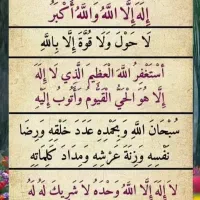 إِلَهَ إِلَّا اللَّهُ وَاللَّهُ أَكْبَرُ
لَا حَوْلَ وَلَا قُوَّةَ إِلَّا بِاللَّهِ
أَسْتَغْفِرُ اللَّهَ الْعَظِيمَ الَّذِي لَا إِلَهَ
إِلَّا هُوَ الْحَيُّ الْقَيُّومُ وَأَتُوبُ إِلَيْهِ
سُبْحَانَ اللَّهِ وَبِحَمْدِهِ عَدَدَ خَلْقِهِ وَرِضَا
نَفْسِهِ وَزِنَةَ عَرْشِهِ وَمِدَادَ كَلِمَاتِهِ
لَا إِلَهَ إِلَّا اللَّهُ وَحْدَهُ لَا شَرِيكَ لَهُ لَهُ